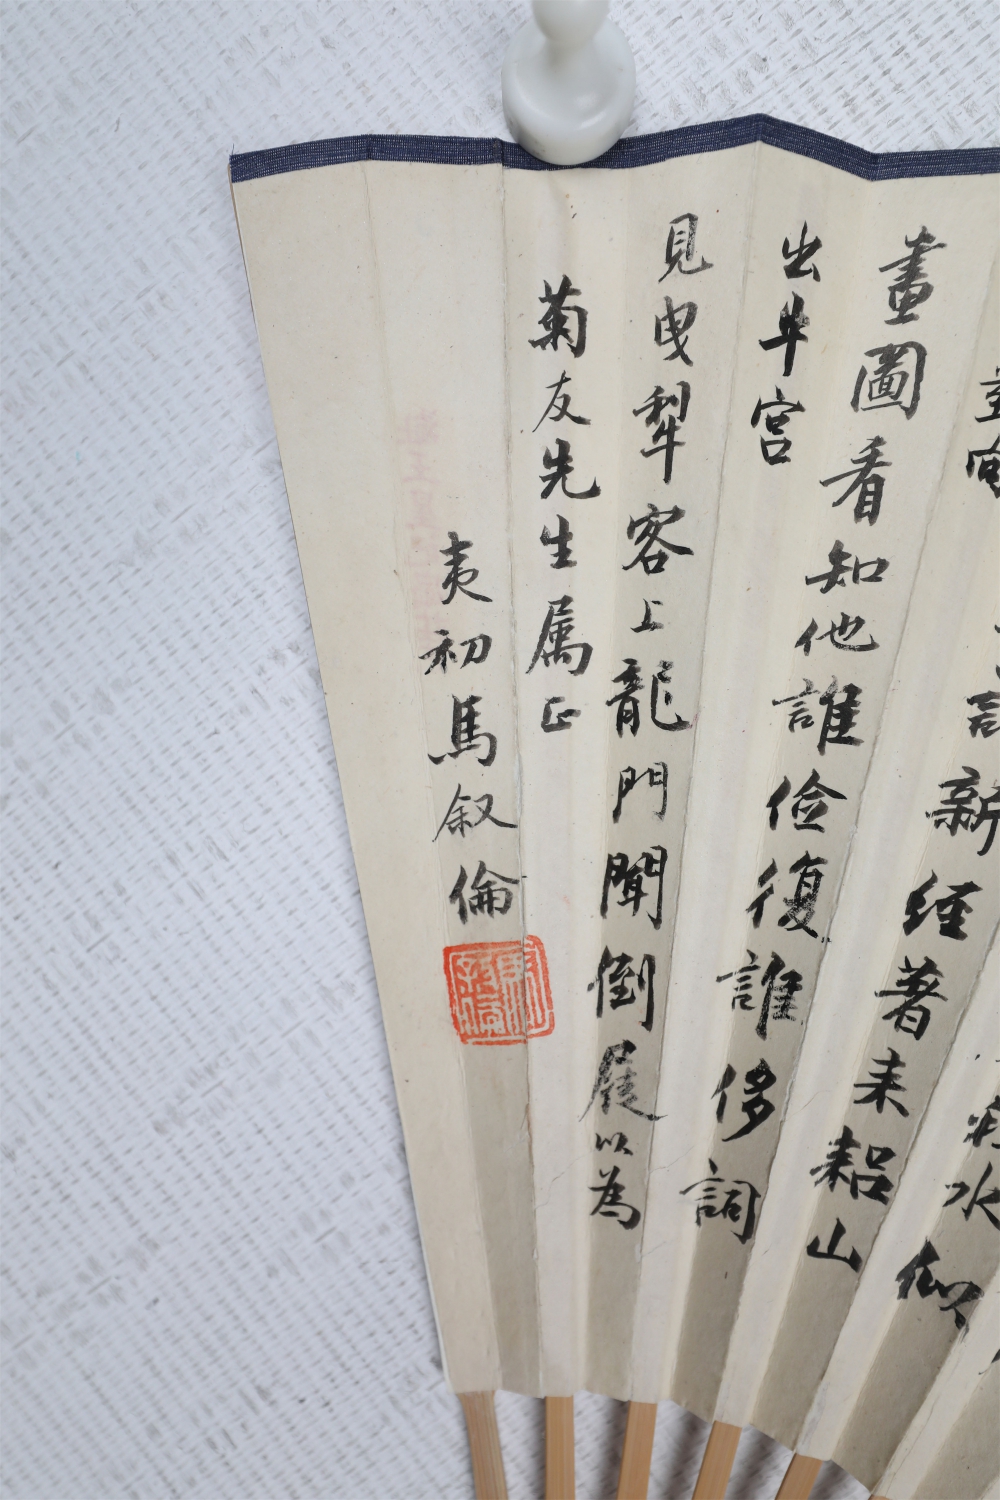 水仙
新經著耒耜山
畫圖看知他誰儉復誰侈詞
出斗宮
見曳犁客上龍門聞倒屐以為
菊友先生属正
夷初馬叙倫